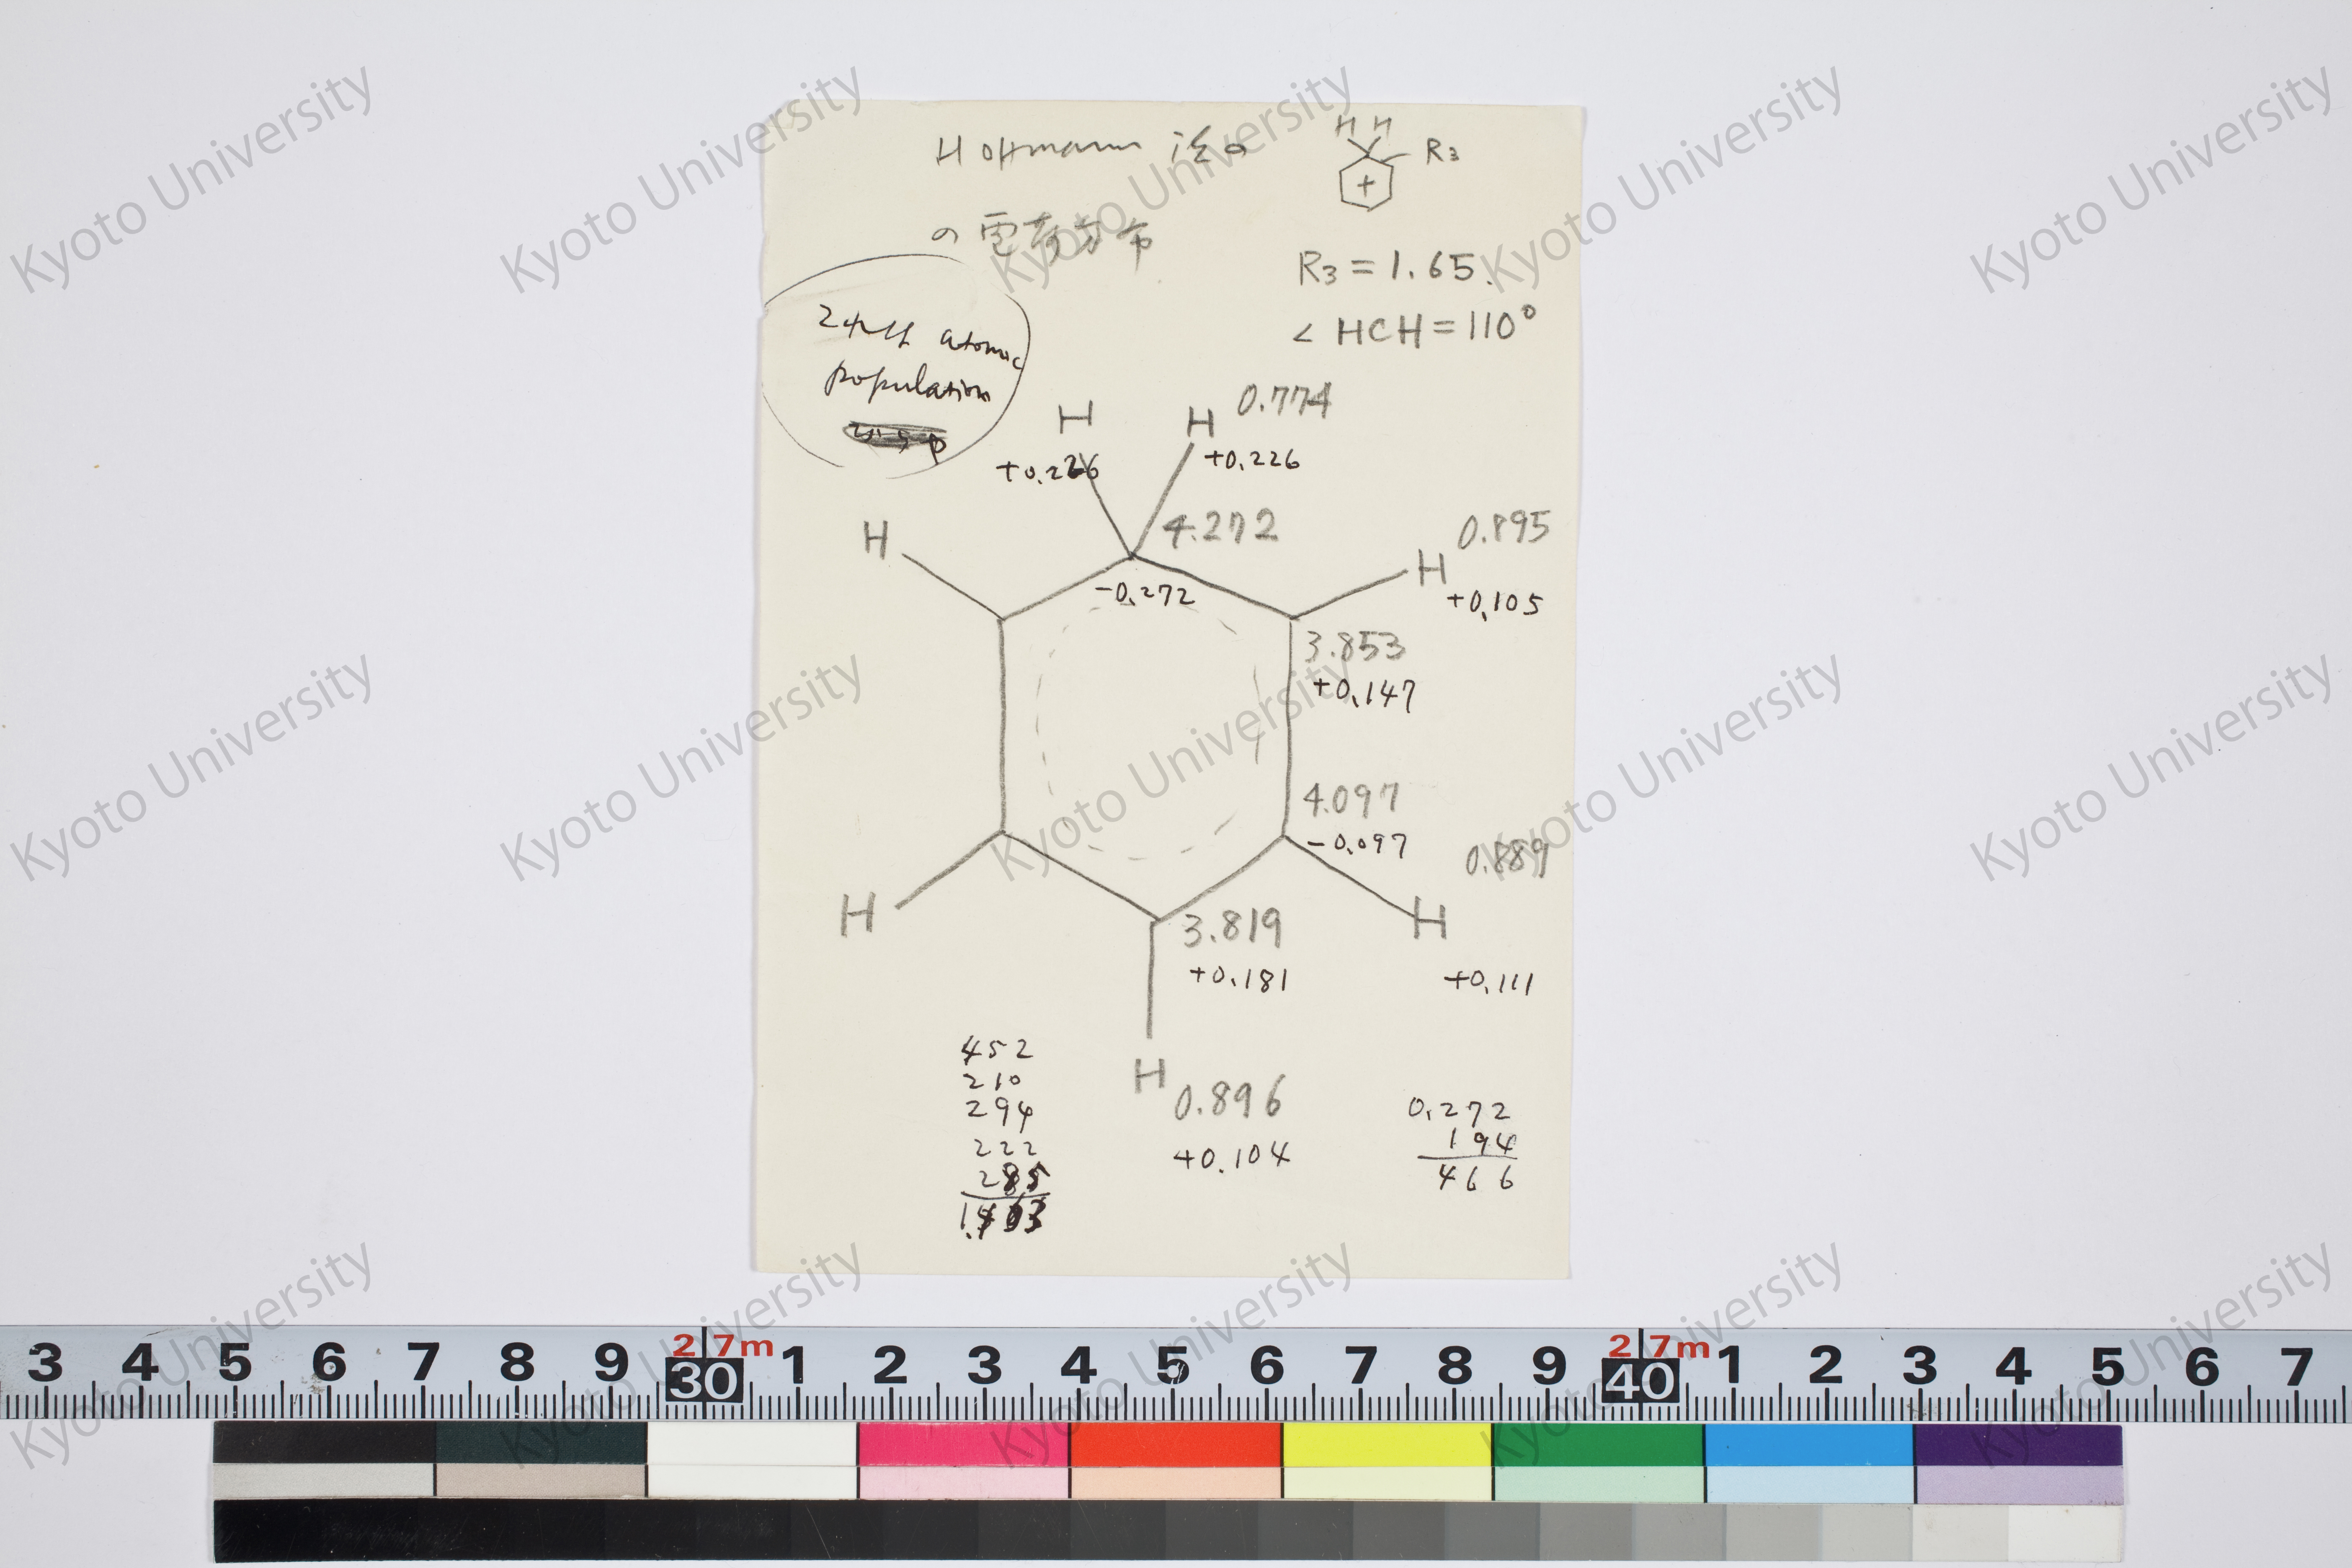 Hoffmann 法の
の電荷分布
H H
R3
+
R3 = 1.65.
< HCH = 110°
これは atomic
population
H
H 0.774
+0.226
+0.226
H
4.272
0.895
H
-0.272
+0.105
3.853
+0.147
4.097
-0.097
0.889
H
H
3.819
+0.181
+0.111
H
0.896
+0.104
452
210
294
222
285
0.272
194
466
3 4 5 6 7 8 9 30 1 2 3 4 5 6 7 8 9 40 1 2 3 4 5 6 7
27m
27m
Kyoto University